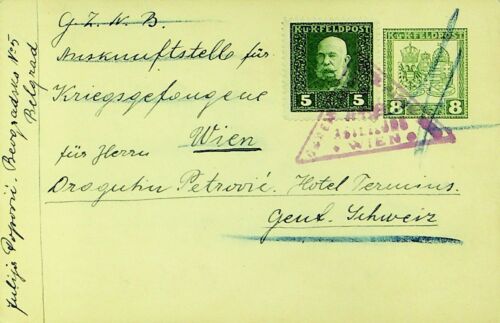 G. Z. N. B.
Auskunftstelle für
Kriegsgefangene
Wien
für Herrn
Dragutin Petrović. Hotel Terminus.
Genf. Schweiz
Julija Popović. Beogradska No 5
Belgrad
K.u.K. FELDPOST
5 5
K.u.K. FELDPOST
8 8
WIEN